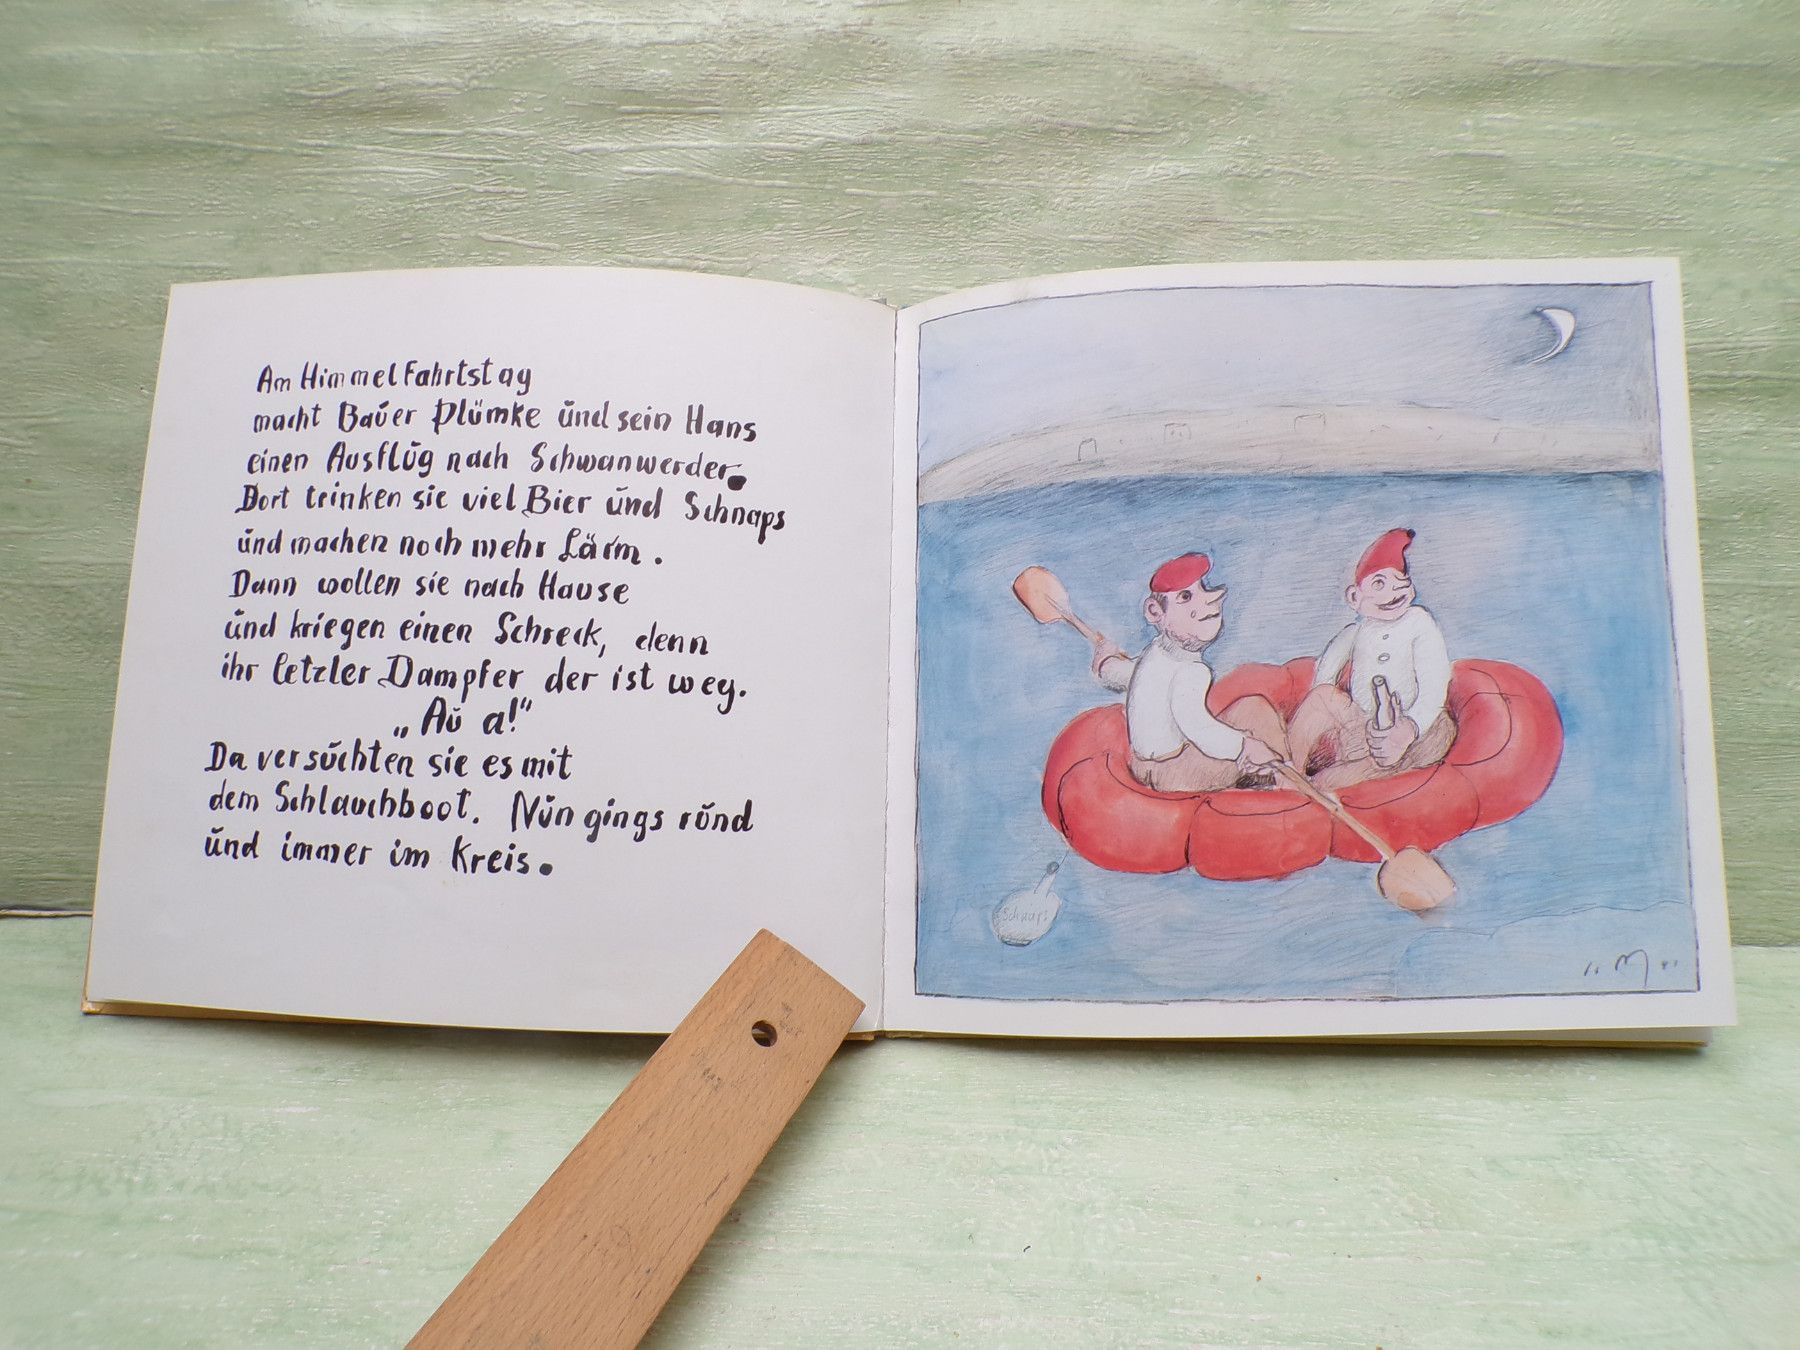 Am Himmelfahrtstag
macht Bauer Plümke und sein Hans
einen Ausflug nach Schwanwerder.
Dort trinken sie viel Bier und Schnaps
und machen noch mehr Lärm.
Dann wollen sie nach Hause
und kriegen einen Schreck, denn
ihr letzter Dampfer der ist weg.
„Au a!“
Da versuchten sie es mit
dem Schlauchboot. Nun gings rund
und immer im Kreis.
Schnaps